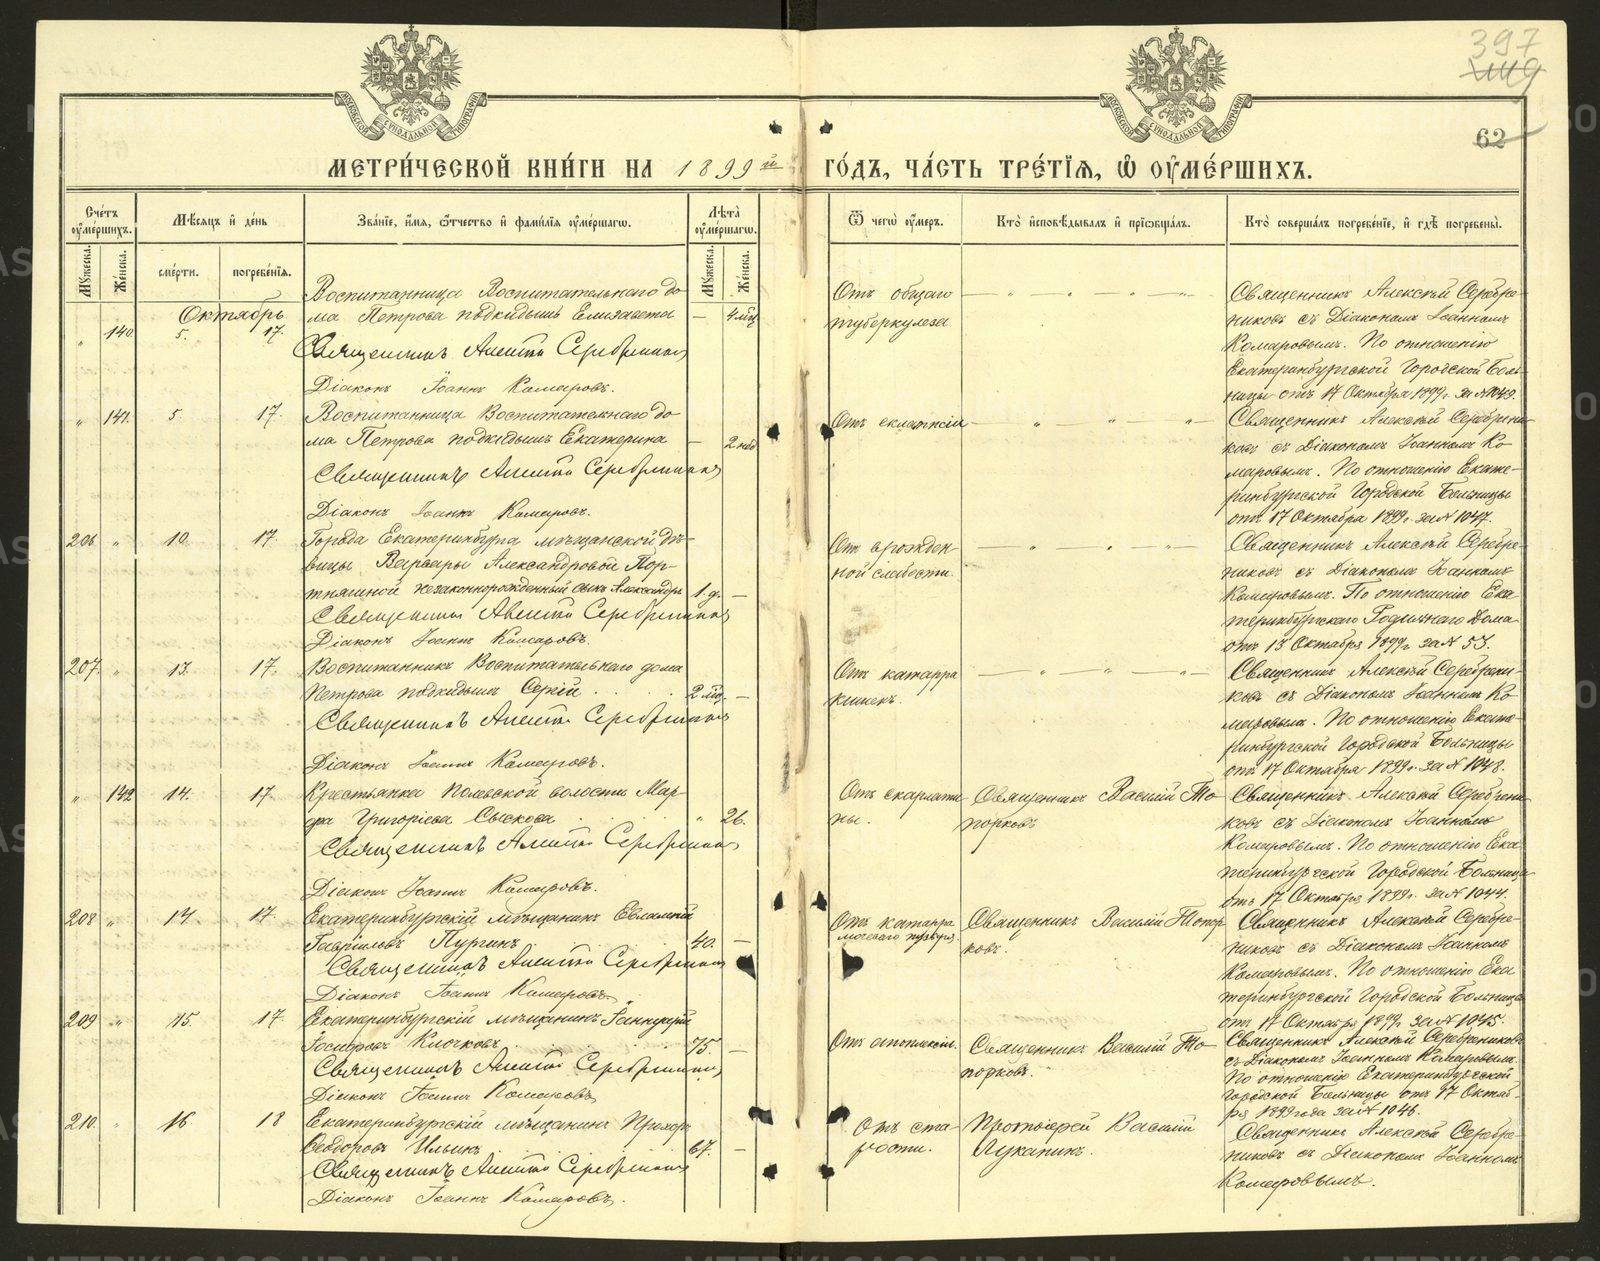 397
62
МЕТРИ́ЧЕСКОЙ КНИ́ГИ НА 1899й ГО́ДЪ, ЧА́СТЬ ТРЕ́ТІЯ, Ѡ ОУМЕ́РШИХЪ.
Сче́тъ оуме́ршихъ.
Мѣ́сяцъ и҆ де́нь
Зва́ніе, и҆́мя, ѻ҆́тчество и҆ фами́лія оуме́ршагѡ.
Лѣ́та оуме́ршагѡ.
Ѿ чегѡ̀ оу́меръ.
Кто̀ и҆сповѣ́дывалъ и҆ прїѡбща́лъ.
Кто̀ соверша́лъ погребе́ніе, и҆ гдѣ̀ погребены̀.
Му́жеска. Же́нска. сме́рти. погребе́нія. Му́жеска. Же́нска.
Октябрь
" 140. 5. 17.
Воспитанница Воспитательнаго до-
ма Петрова подкидышъ Елизавета — 4 мѣс
Священникъ Алексѣй Серебренниковъ
Діаконъ Іоаннъ Комаровъ.
Отъ общаго
туберкулеза
Священникъ Алексѣй Серебре-
никовъ съ Діакономъ Іоанномъ
Комаровымъ. По отношенію
Екатеринбургской Городской Боль-
ницы отъ 17 Октября 1899 г. за № 1049.
" 141. 5. 17.
Воспитанница Воспитательнаго до-
ма Петрова подкидышъ Екатерина — 2 нед
Священникъ Алексѣй Серебренниковъ
Діаконъ Іоаннъ Комаровъ.
Отъ еклампсіи
Священникъ Алексѣй Серебрени-
ковъ съ Діакономъ Іоанномъ Ко-
маровымъ. По отношенію Екате-
ринбургской Городской Больницы
отъ 17 Октября 1899 г. за № 1047.
206 " 10. 17.
Города Екатеринбурга мѣщанской дѣ-
вицы Варвары Александровой Пор-
тнягиной незаконнорожденный сынъ Александръ 1. д. —
Священникъ Алексѣй Серебренниковъ
Діаконъ Іоаннъ Комаровъ.
Отъ врожден-
ной слабости.
Священникъ Алексѣй Серебре-
никовъ съ Діакономъ Іоанномъ
Комаровымъ. По отношенію Ека-
теринбургскаго Родильнаго Дома
отъ 13 Октября 1899 г. за № 53.
207. " 13. 17.
Воспитанникъ Воспитательнаго дома
Петрова подкидышъ Сергій 2 мѣс. —
Священникъ Алексѣй Серебренниковъ
Діаконъ Іоаннъ Комаровъ.
Отъ катарра
кишекъ.
Священникъ Алексѣй Серебрени-
ковъ съ Діакономъ Іоанномъ Ко-
маровымъ. По отношенію Екате-
ринбургской Городской Больницы
отъ 17 Октября 1899 г. за № 1048.
" 142 14. 17.
Крестьянка Полевской волости Мар-
ѳа Григоріева Сыскова " 26.
Священникъ Алексѣй Серебренниковъ
Діаконъ Іоаннъ Комаровъ.
Отъ скарлати-
ны.
Священникъ Василій То-
порковъ
Священникъ Алексѣй Серебрени-
ковъ съ Діакономъ Іоанномъ
Комаровымъ. По отношенію Ека-
теринбургской Городской Больницы
отъ 17 Октября 1899 г. за № 1044.
208 " 14. 17.
Екатеринбургскій мѣщанинъ Евлампій
Гавріиловъ Пургинъ 40. —
Священникъ Алексѣй Серебренниковъ
Діаконъ Іоаннъ Комаровъ.
Отъ катарра
мочеваго пузыря.
Священникъ Василій Топор-
ковъ.
Священникъ Алексѣй Серебре-
никовъ съ Діакономъ Іоанномъ
Комаровымъ. По отношенію Ека-
теринбургской Городской Больницы
отъ 17 Октября 1899 г. за № 1045.
209 " 15. 17.
Екатеринбургскій мѣщанинъ Іаннуарій
Іосифовъ Клочковъ 75. —
Священникъ Алексѣй Серебренниковъ
Діаконъ Іоаннъ Комаровъ
Отъ апоплексіи.
Священникъ Василій То-
порковъ.
Священникъ Алексѣй Серебрениковъ
съ Діакономъ Іоанномъ Комаровымъ.
По отношенію Екатеринбургской
Городской Больницы отъ 17 Октяб-
ря 1899 года за № 1046.
210. " 16 18
Екатеринбургскій мѣщанинъ Прохоръ
Ѳеодоровъ Ильинъ 67. —
Священникъ Алексѣй Серебренниковъ
Діаконъ Іоаннъ Комаровъ.
Отъ ста-
рости.
Протоіерей Василій
Луканинъ.
Священникъ Алексѣй Серебре-
никовъ съ Діакономъ Іоанномъ
Комаровымъ.